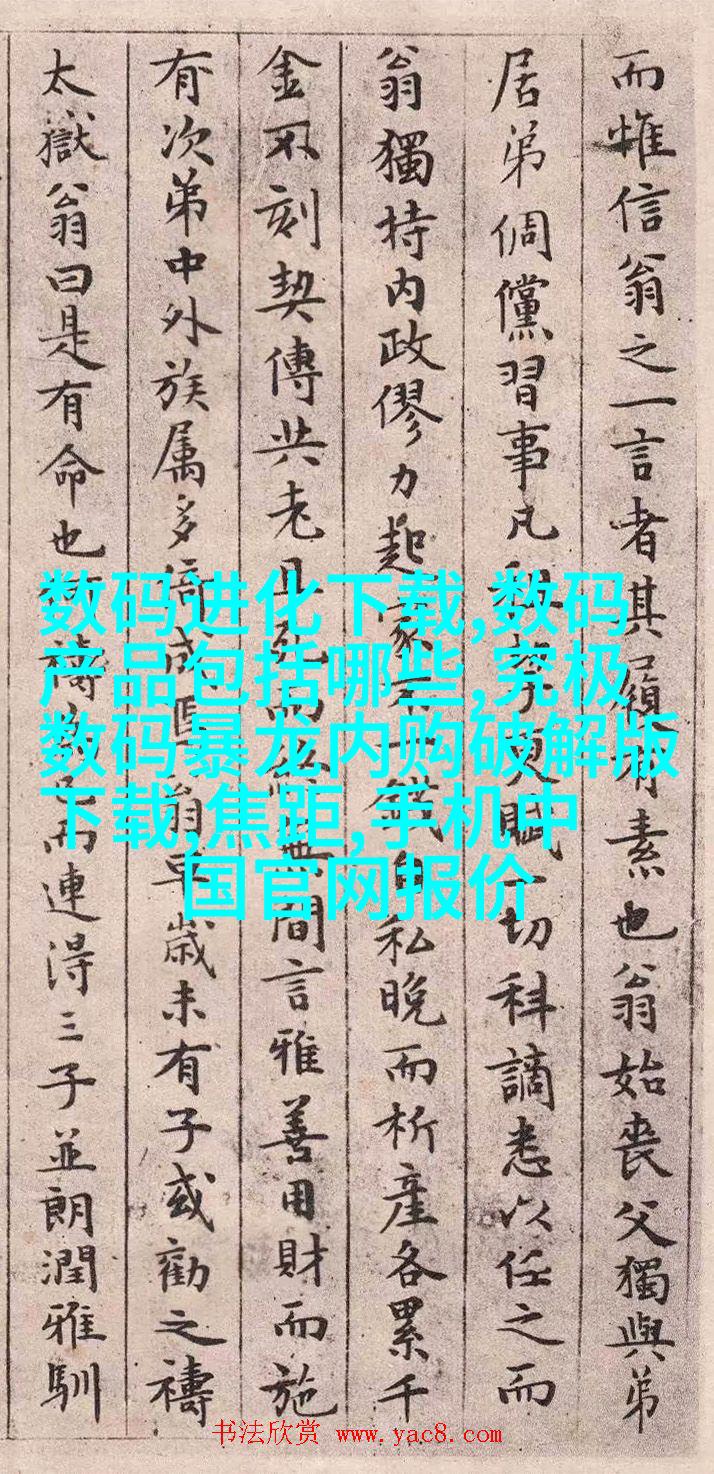 而惟信翁之一言者其履有素也翁始喪父獨與弟
居弟倜儻習事凡見賦一切科謫悉以任之而
翁獨持内政僇力起家不一錢自私晚而析產各累千
金不刻契傳共老且死而無間言雅善用財而施
有次第中外族属多翁早歲未有子或勸之禱
太嶽翁曰是有命也禱而連得三子並朗潤雅馴
数码进化下载,数码
产品包括哪些,究极
数码暴龙内购破解版
下载,焦距,手机中
国官网报价
书法欣赏 www.yac8.com